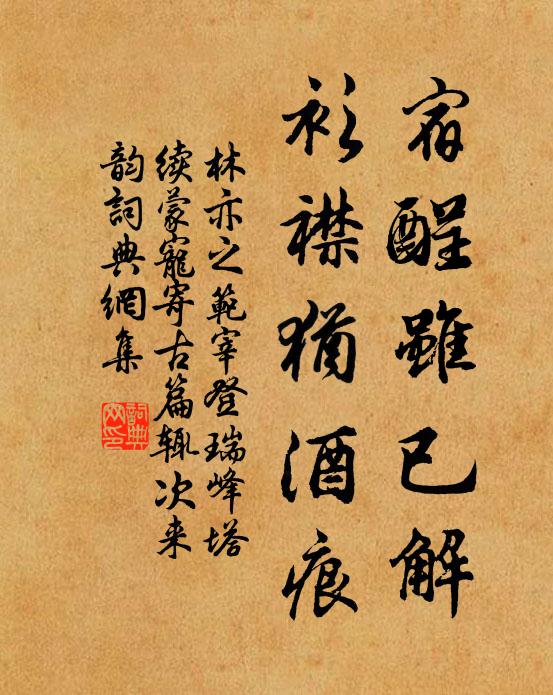 宿酲雖已解
衫襟猶酒痕
林亦之範宰登瑞峰塔
续蒙寵寄古篇辄次来
韵詞典網集
詞典
网印